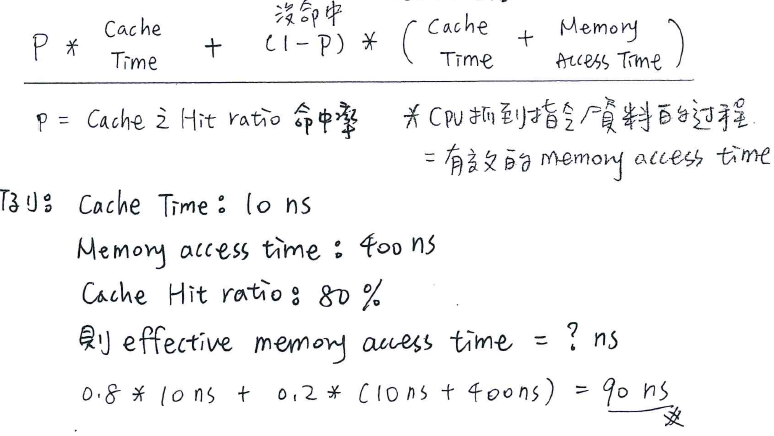 沒命中
P * Cache Time + (1-P) * ( Cache Time + Memory Access Time )
P = Cache 之 Hit ratio 命中率 * CPU抓到指令/資料的过程
= 有效的 memory access time
例: Cache Time: 10 ns
Memory access time: 400 ns
Cache Hit ratio: 80 %
則 effective memory access time = ? ns
0.8 * 10 ns + 0.2 * (10ns + 400ns) = 90 ns